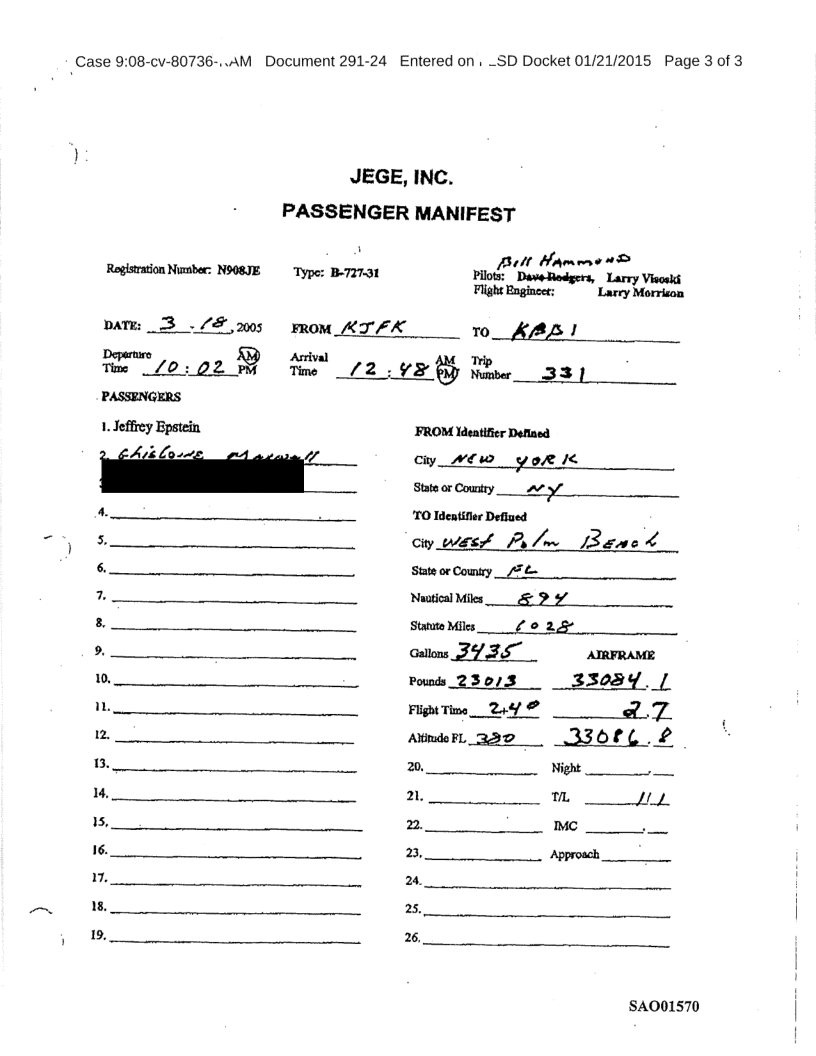 Case 9:08-cv-80736-..AM Document 291-24 Entered on . _SD Docket 01/21/2015 Page 3 of 3
JEGE, INC.
PASSENGER MANIFEST
Bill Hammond
Registration Number: N908JE Type: B-727-31 Pilots: Dave Rodgers, Larry Visoski
Flight Engineer: Larry Morrison
DATE: 3 - 18, 2005 FROM KJFK TO KBBI
Departure Time 10:02 AM PM Arrival Time 12:48 AM PM Trip Number 331
PASSENGERS
1. Jeffrey Epstein FROM Identifier Defined
2. Ghislaine Maxwell City NEW YORK
State or Country NY
4. TO Identifier Defined
5. City WEST Palm BEACh
6. State or Country FL
7. Nautical Miles 894
8. Statute Miles 1028
9. Gallons 3435 AIRFRAME
10. Pounds 23013 33084.1
11. Flight Time 2+40 2.7
12. Altitude FL 380 33086.8
13. 20. Night
14. 21. T/L 1/1
15. 22. IMC
16. 23. Approach
17. 24.
18. 25.
19. 26.
SAO01570